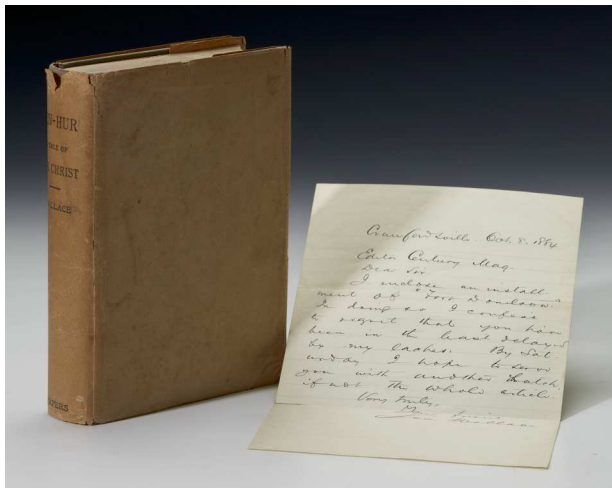 -HUR
TALE OF
CHRIST
LLACE
PERS
Crawfordsville. Oct. 8. 1884
Editor Century Mag.
Dear Sir
I inclose an install-
ment of "Fort Donelson."
In doing so I confess
to regret that you have
been in the least delayed
by my laches. By Sat
urday I hope to serve
you with another batch
if not the whole article.
Very truly,
Lew Wallace